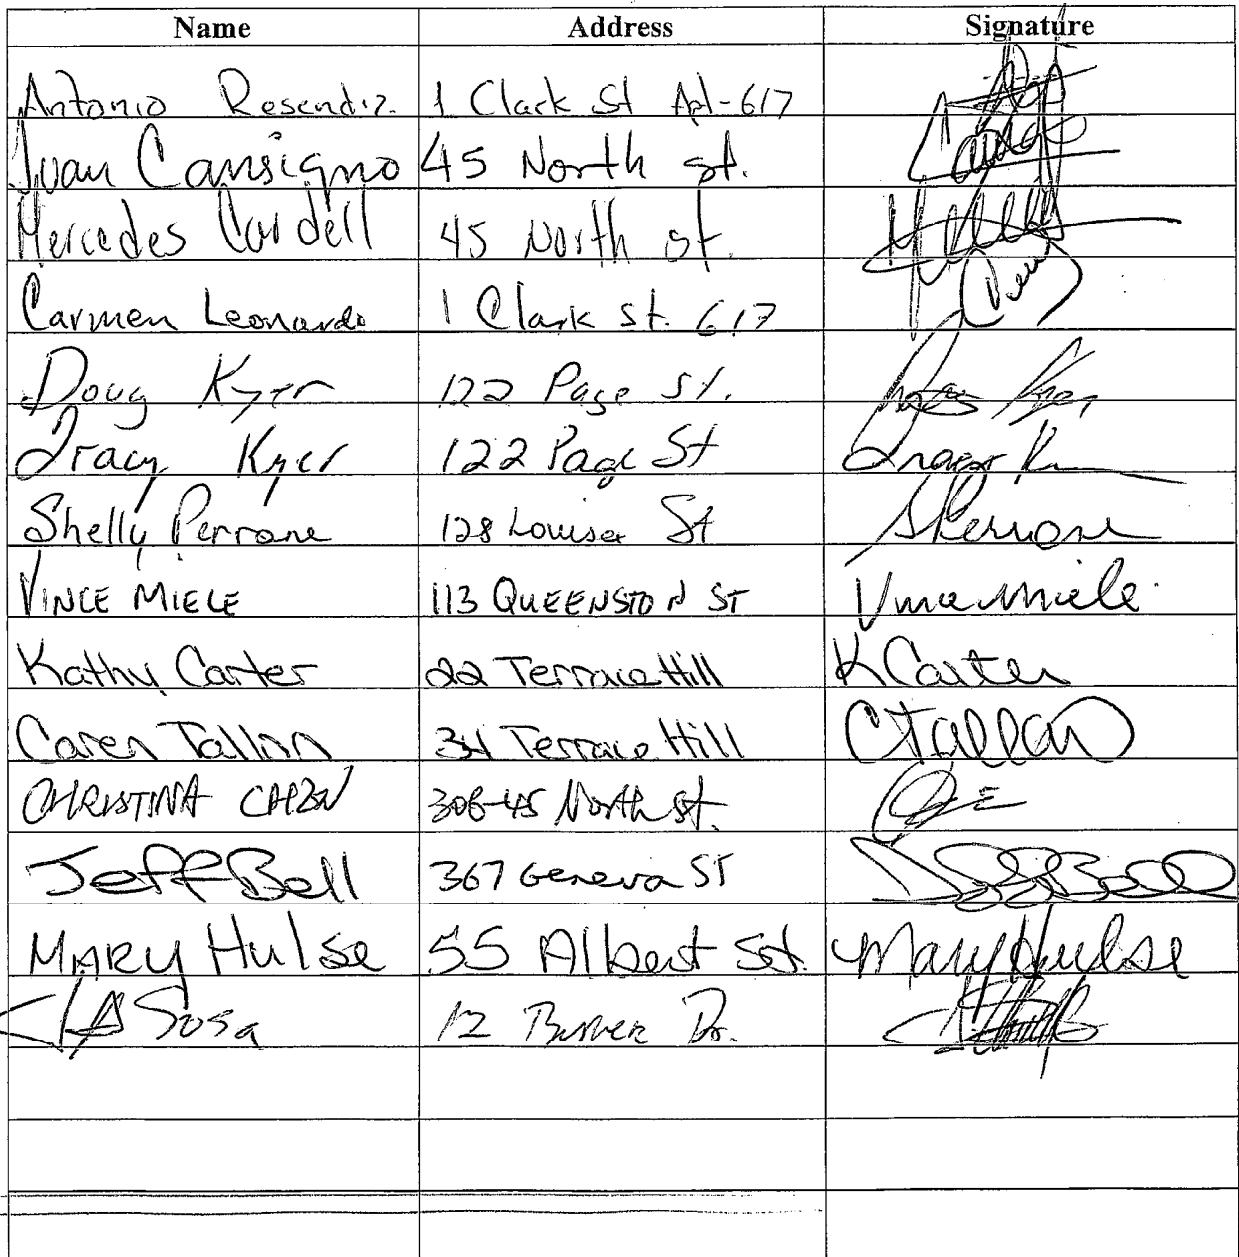 Name Address Signature
Antonio Resendiz. 1 Clark St Apt-617
Juan Cansigno 45 North st.
Mercedes Cardell 45 North st.
Carmen Leonardo 1 Clark st. 617
Doug Kyer 122 Page St.
Tracy Kyer 122 Page St Tracy
Shelly Perrone 128 Louisa St SPerrone
VINCE MIELE 113 QUEENSTON ST Vince Miele
Kathy Carter 22 Terrace Hill K Carter
Caren Tallon 34 Terrace Hill CTallon
CHRISTINA 308-45 North st.
Jeff Bell 367 Geneva ST Jeff Bell
MARY Hulse 55 Albert Sst. Mary Hulse
Sosa 12 Dr.